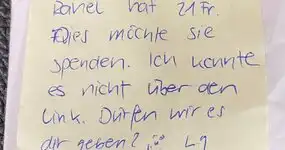 Babel hat 21 Fr.
Dies möchte sie
spenden. Ich konnte
es nicht über den
Link. Dürfen wir es
dir geben? Lg